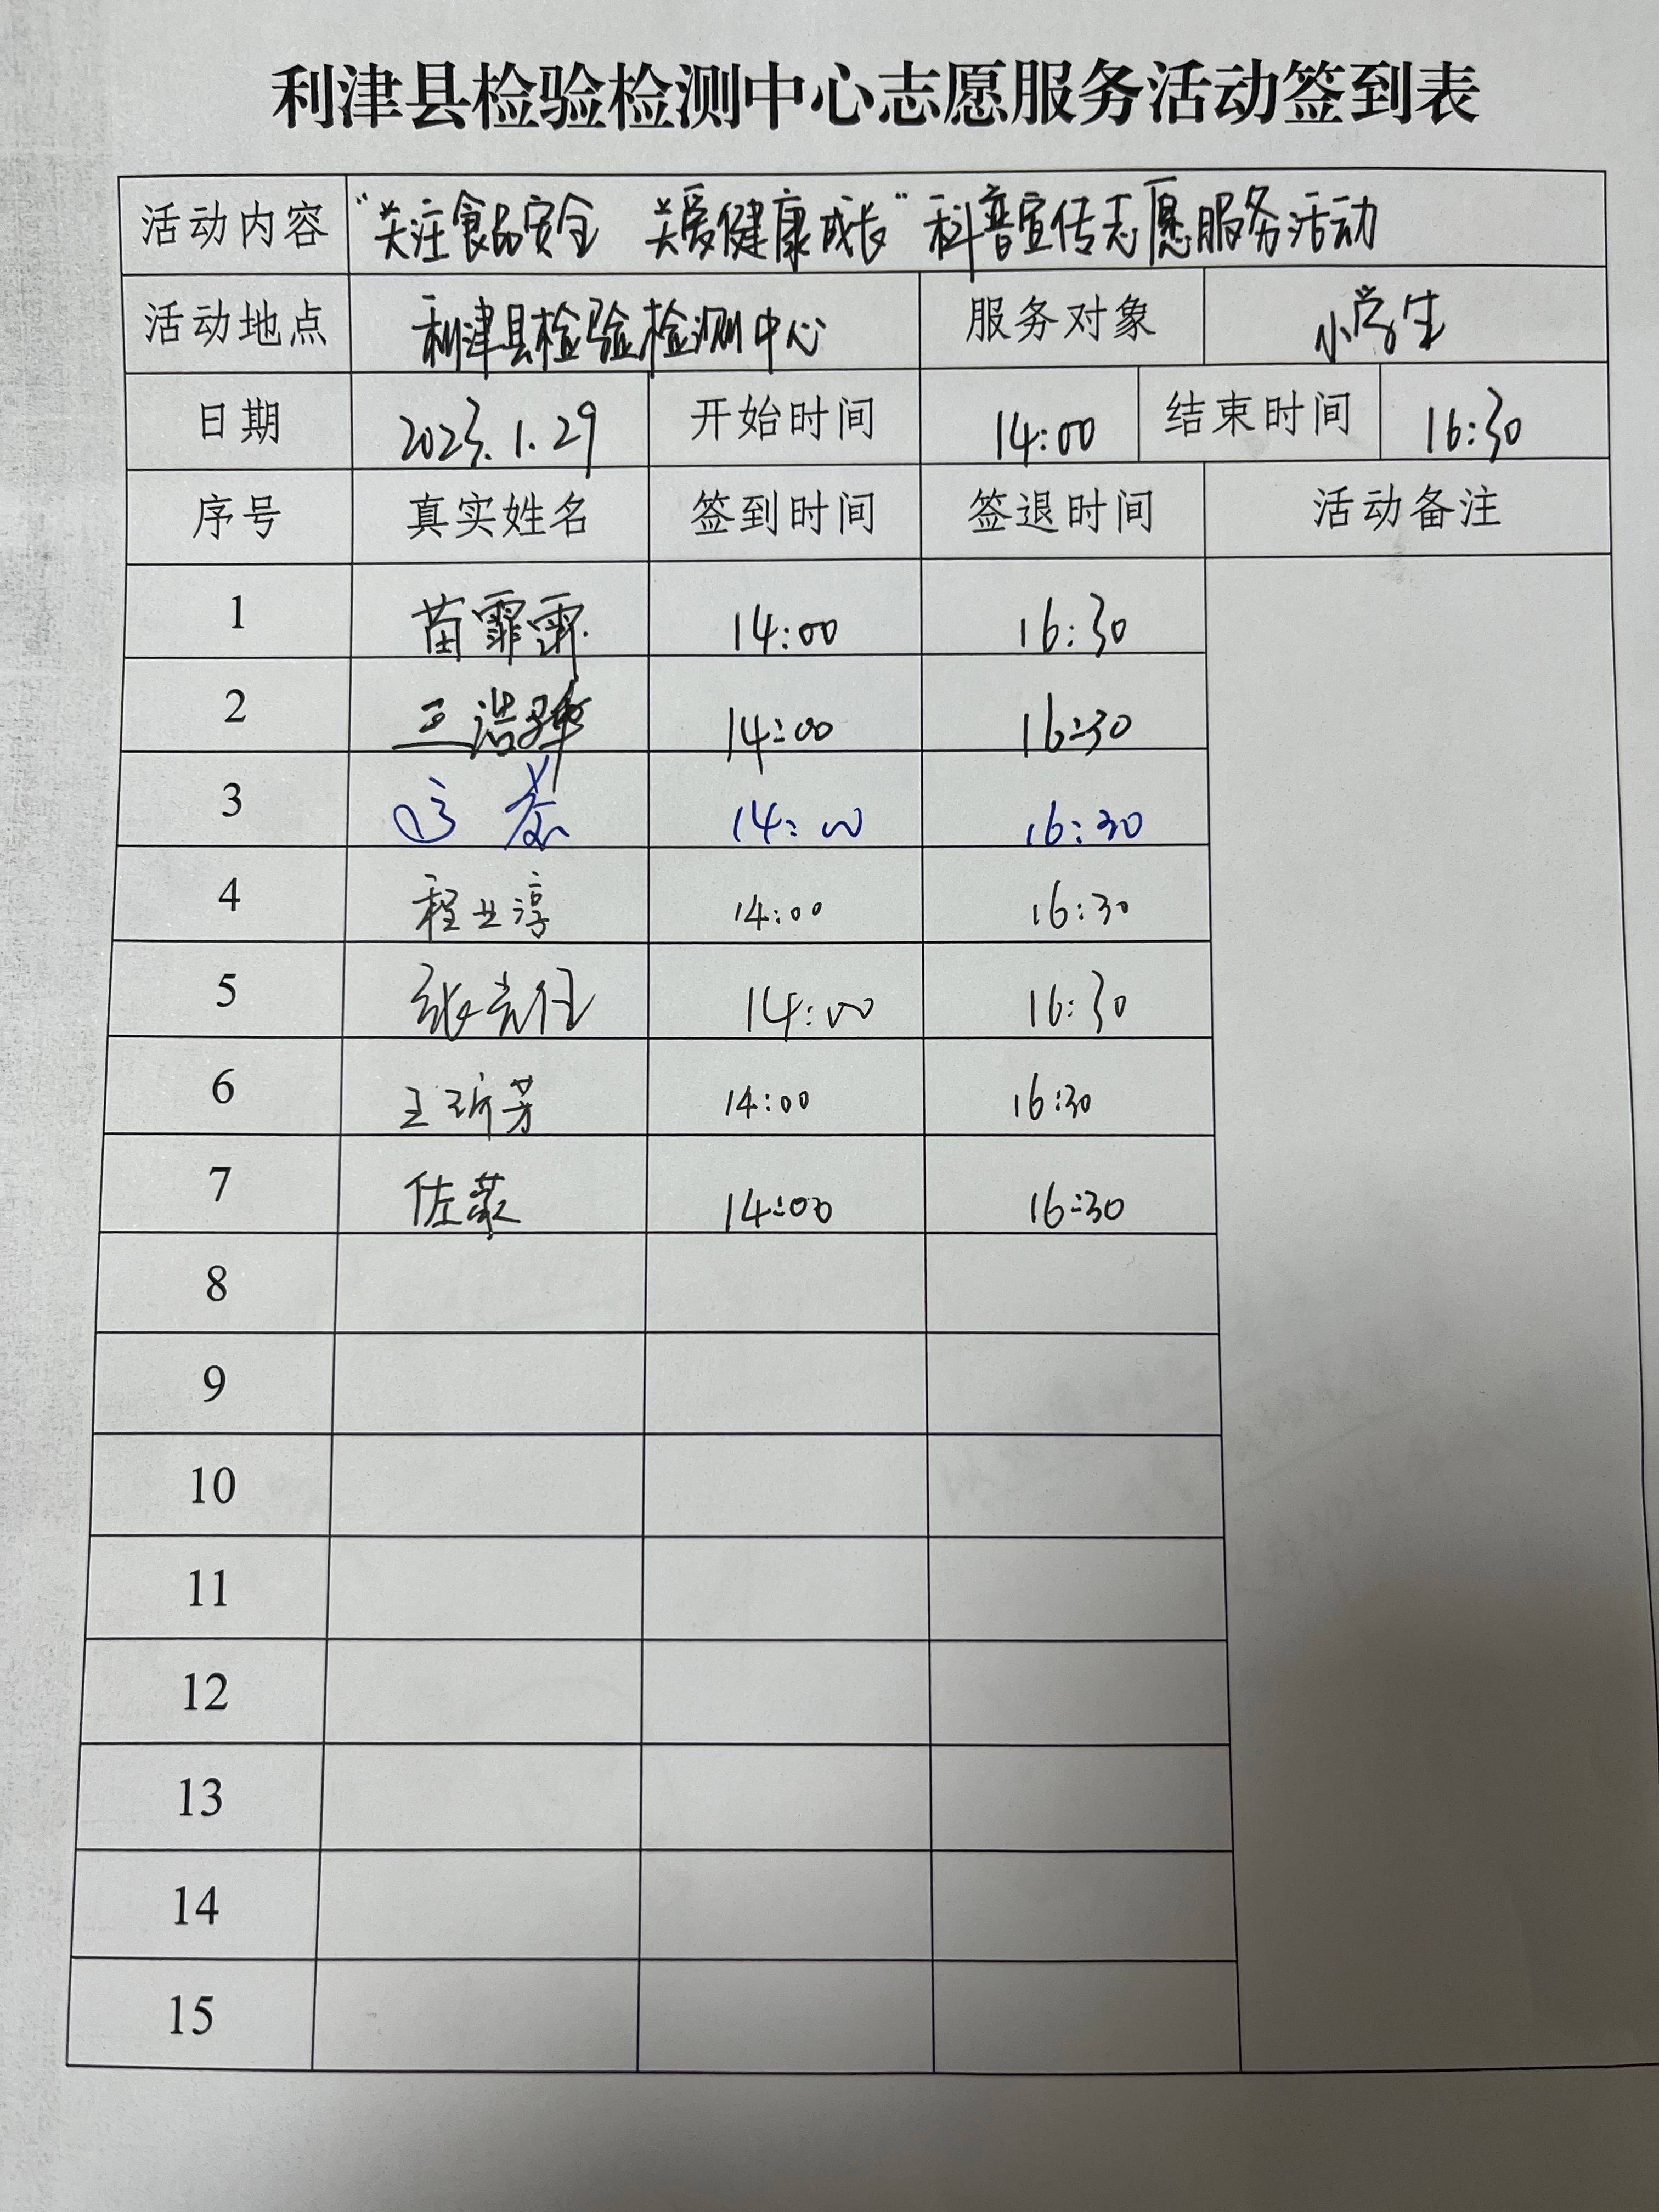 利津县检验检测中心志愿服务活动签到表
活动内容 "关注食品安全 关爱健康成长"科普宣传志愿服务活动
活动地点 利津县检验检测中心 服务对象 小学生
日期 2023.1.29 开始时间 14:00 结束时间 16:30
序号 真实姓名 签到时间 签退时间 活动备注
1 苗霏霏 14:00 16:30
2 14:00 16:30
3 14:00 16:30
4 程业淳 14:00 16:30
5 14:00 16:30
6 王珎芳 14:00 16:30
7 14:00 16:30
8
9
10
11
12
13
14
15